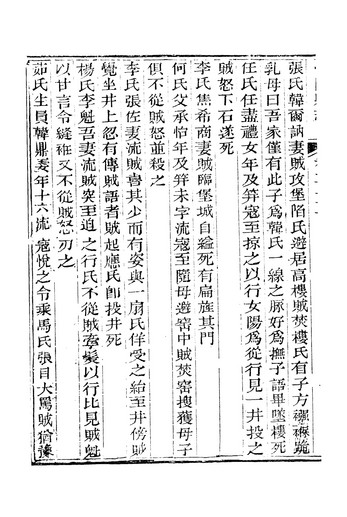 張氏韓爾訥妻賊攻堡陷氏避居高樓賊焚樓氏有子方襁褓跪
乳母曰吾家僅有此子為韓氏一線之脈好為撫子語畢墜樓死
任氏任盡禮女年及笄寇至掠之以行女陽為從行見一井投之
賊怒下石遂死
李氏焦希商妻賊臨堡城自縊死有扁旌其門
何氏父承怡年及笄未字流寇至隨母避窖中賊焚窖搜獲母子
俱不從賊怒並殺之
李氏張佐妻流賊虜其少而有姿與一扇氏佯受之紿至井傍賊
覺坐井上忽有傳賊語者賊起應氏卽投井死
楊氏李魁吾妻流賊突至迫之行氏不從賊牽髮以行比見賊魁
以甘言令縫維又不從賊怒刃之
茹氏生員韓鼎妻年十六流寇悅之令乘馬氏張目大罵賊猶豫